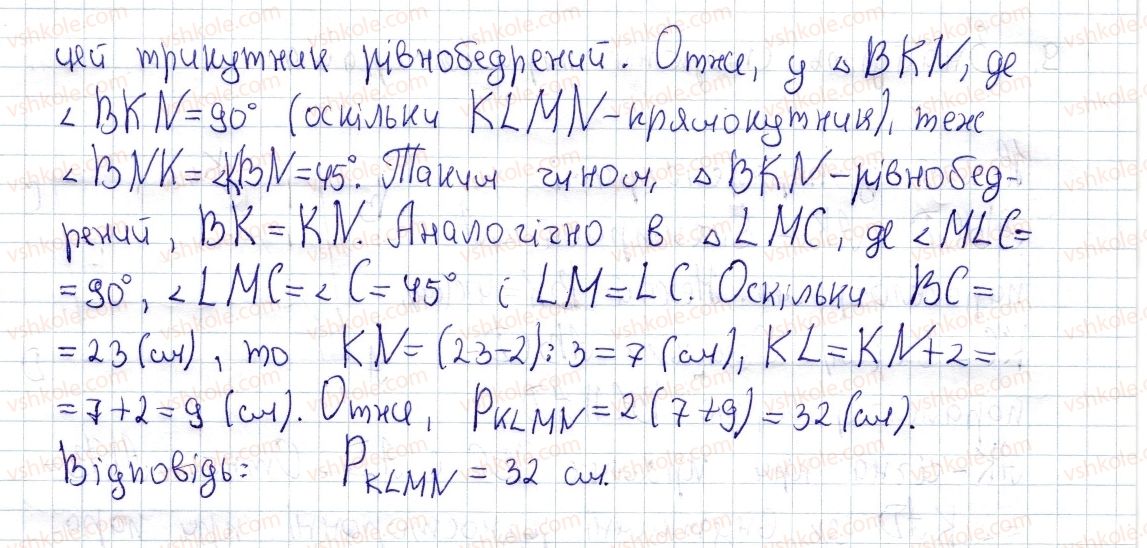 цей трикутник рівнобедрений. Отже, у △ BKN, де
∠ BKN = 90° (оскільки KLMN - прямокутник), теж
∠ BNK = ∠KBN = 45°. Таким чином, △ BKN - рівнобед-
рений, BK = KN. Аналогічно в △ LMC, де ∠ MLC =
= 90°, ∠ LMC = ∠ C = 45° і LM = LC. Оскільки BC =
= 23 (см), то KN = (23-2) : 3 = 7 (см), KL = KN + 2 =
= 7 + 2 = 9 (см). Отже, P_KLMN = 2 (7 + 9) = 32 (см).
Відповідь: P_KLMN = 32 см.